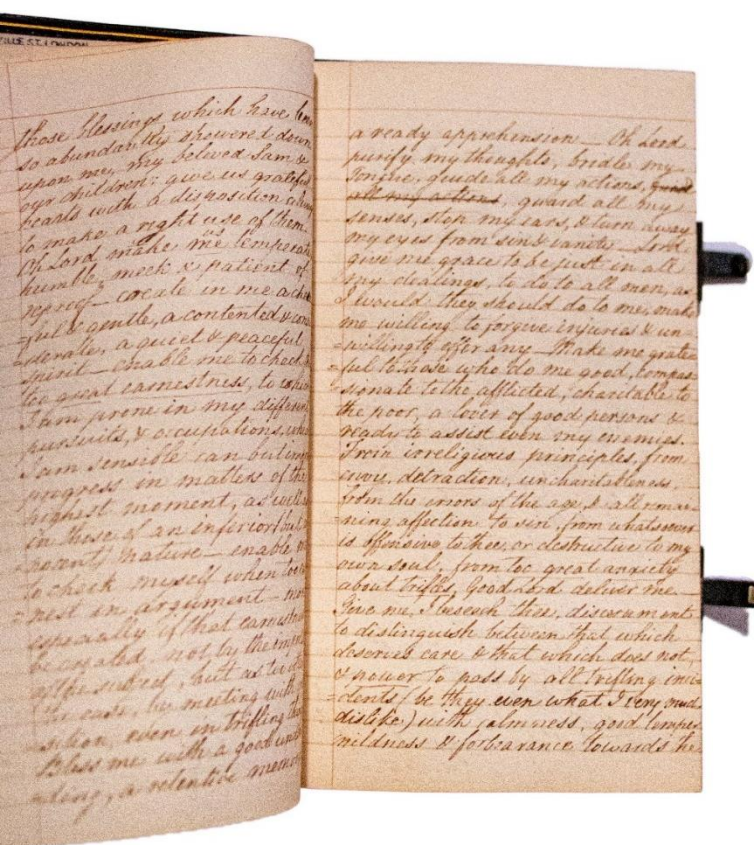 VILLE ST. LONDON
those blessings which have been
so abundantly showered down
upon me, my beloved Sam &
our children: give us grateful
hearts with a disposition
to make a right use of them.
Oh Lord make me temperate
humble, meek & patient of
reproof - create in me a
=ful & gentle, a contented &
=derate, a quiet & peaceful
spirit - enable me to check
too great earnestness, to which
I am prone in my different
pursuits, & occupations, which
I am sensible can but
progress in matters of the
highest moment, as well as
in those of an inferior (but
nature - enable me
to check myself when too
=nest in argument -
especially if that
be created not by the
of the subject, but as is
the case, by meeting with
=sition, even in trifling
Bless me with a good under
=ding, a retentive memory
a ready apprehension _ Oh Lord
purify my thoughts, bridle my
tongue, guide all my actions, guide
all my actions, guard all my
senses, stop my ears, & turn away
my eyes from sin & vanity _ Lord
give me grace to be just in all
my dealings, to do to all men, as
I would they should do to me, make
me willing to forgive injuries & un
=willing to offer any _ Make me grate
=ful to those who do me good, compas
=sionate to the afflicted, charitable to
the poor, a lover of good persons &
ready to assist even my enemies.
From irreligious principles, from
envy, detraction, uncharitableness
from the errors of the age, & all remai
=ning affection to sin, from whatsoever
is offensive to thee, or destructive to my
own soul, from too great anxiety
about trifles, Good Lord deliver me.
Give me, I beseech thee, discernment
to distinguish between that which
deserves care & that which does not,
& power to pass by all trifling inci
=dents (be they even what I very much
dislike) with calmness, good temper
mildness & forbearance towards the